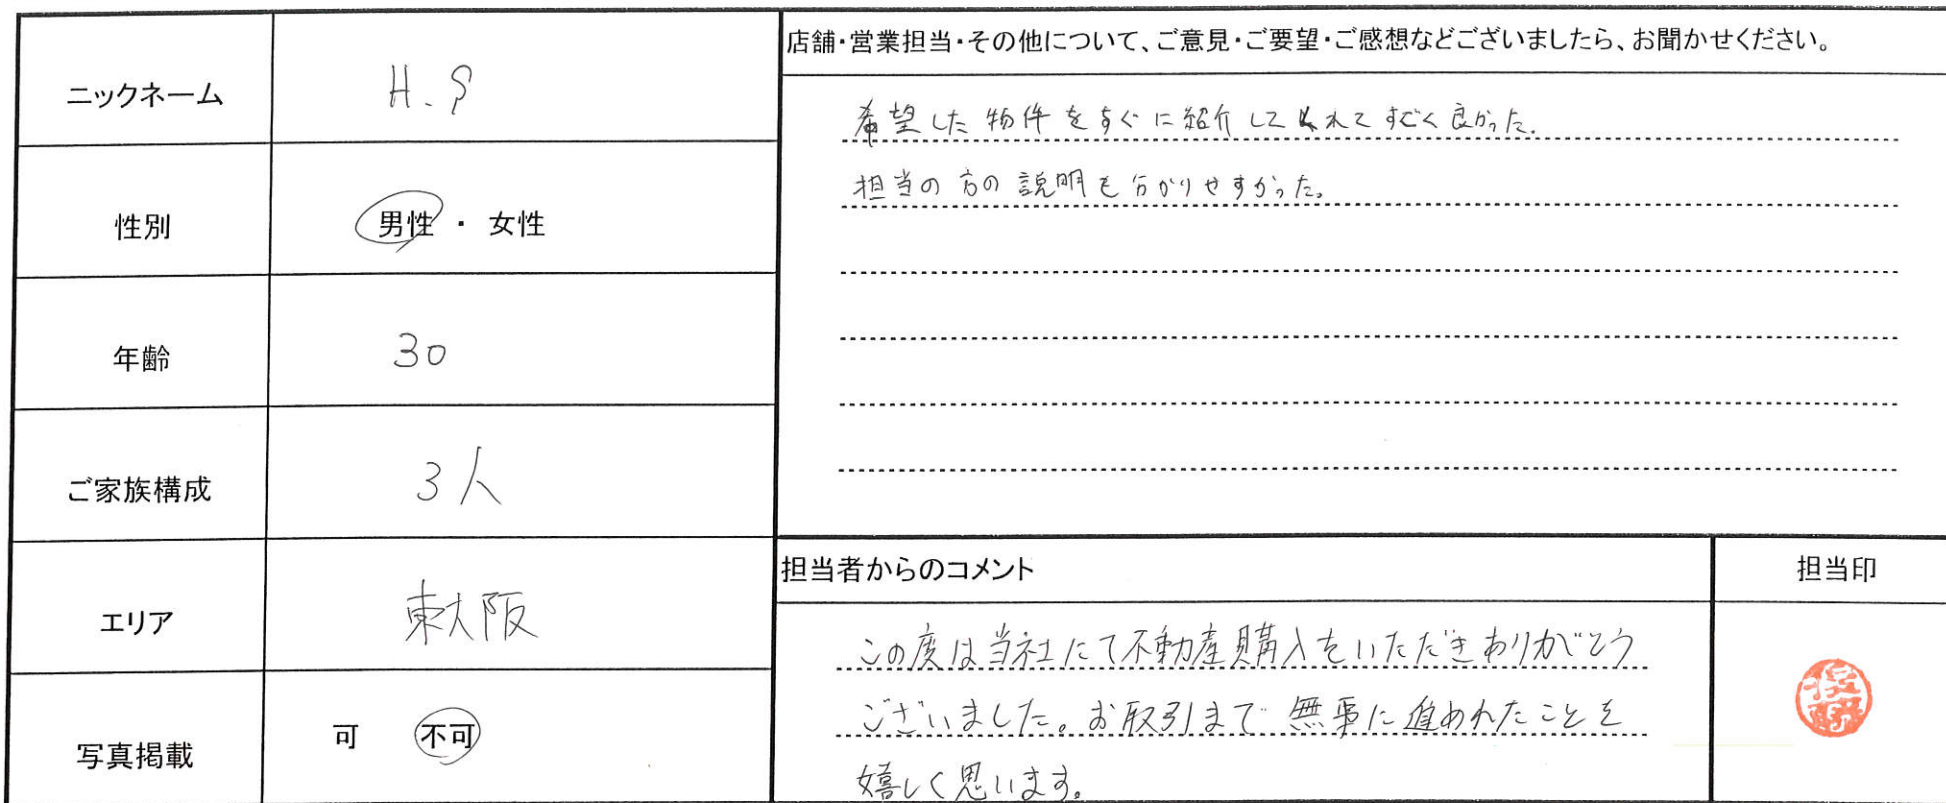 ニックネーム H.S
性別 男性 ・ 女性
年齢 30
ご家族構成 3人
エリア 東大阪
写真掲載 可 不可
店舗・営業担当・その他について、ご意見・ご要望・ご感想などございましたら、お聞かせください。
希望した物件をすぐに紹介してくれてすごく良かった.
担当の方の説明も分かりやすかった。
担当者からのコメント
この度は当社にて不動産購入をいただきありがとう
ございました。お取引まで無事に進めれたことを
嬉しく思います。
担当印